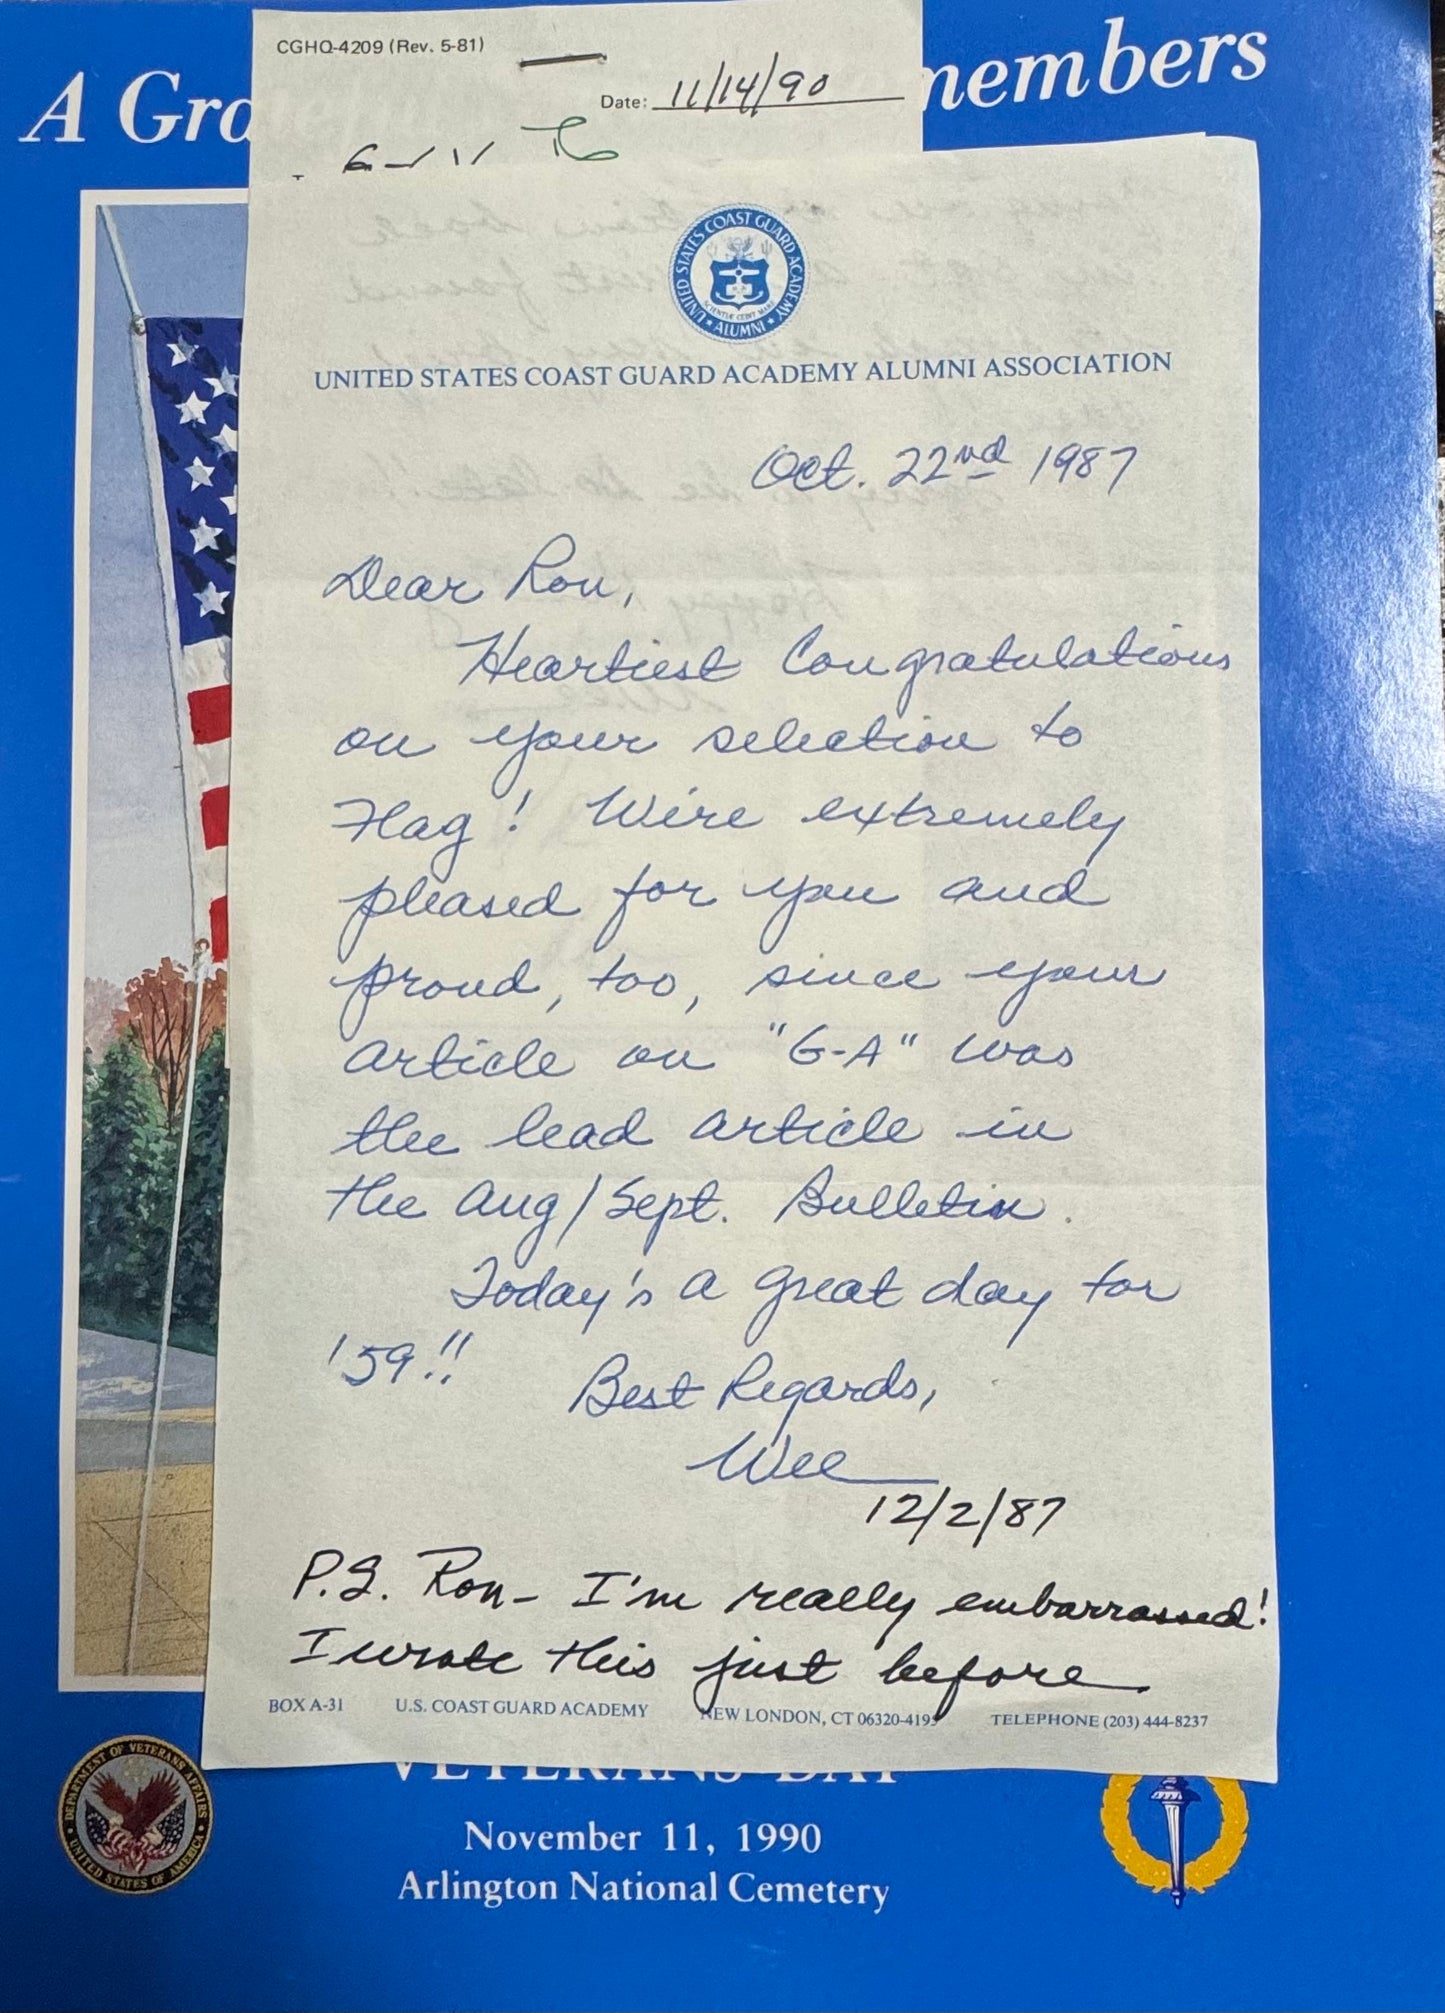 CGHQ-4209 (Rev. 5-81)
A Gra members
Date: 11/14/90
UNITED STATES COAST GUARD ACADEMY
SCIENTIAE CEDIT MARE
ALUMNI
UNITED STATES COAST GUARD ACADEMY ALUMNI ASSOCIATION
Oct. 22nd 1987
Dear Ron,
Heartiest Congratulations
on your selection to
Flag! We're extremely
pleased for you and
proud, too, since your
article on "G-A" was
the lead article in
the Aug/Sept. Bulletin.
Today's a great day for
'59!!
Best Regards,
12/2/87
P.S. Ron- I'm really embarrassed!
I wrote this just before
BOX A-31 U.S. COAST GUARD ACADEMY NEW LONDON, CT 06320-4195 TELEPHONE (203) 444-8237
VETERANS DAY
November 11, 1990
Arlington National Cemetery
DEPARTMENT OF VETERANS AFFAIRS
UNITED STATES OF AMERICA